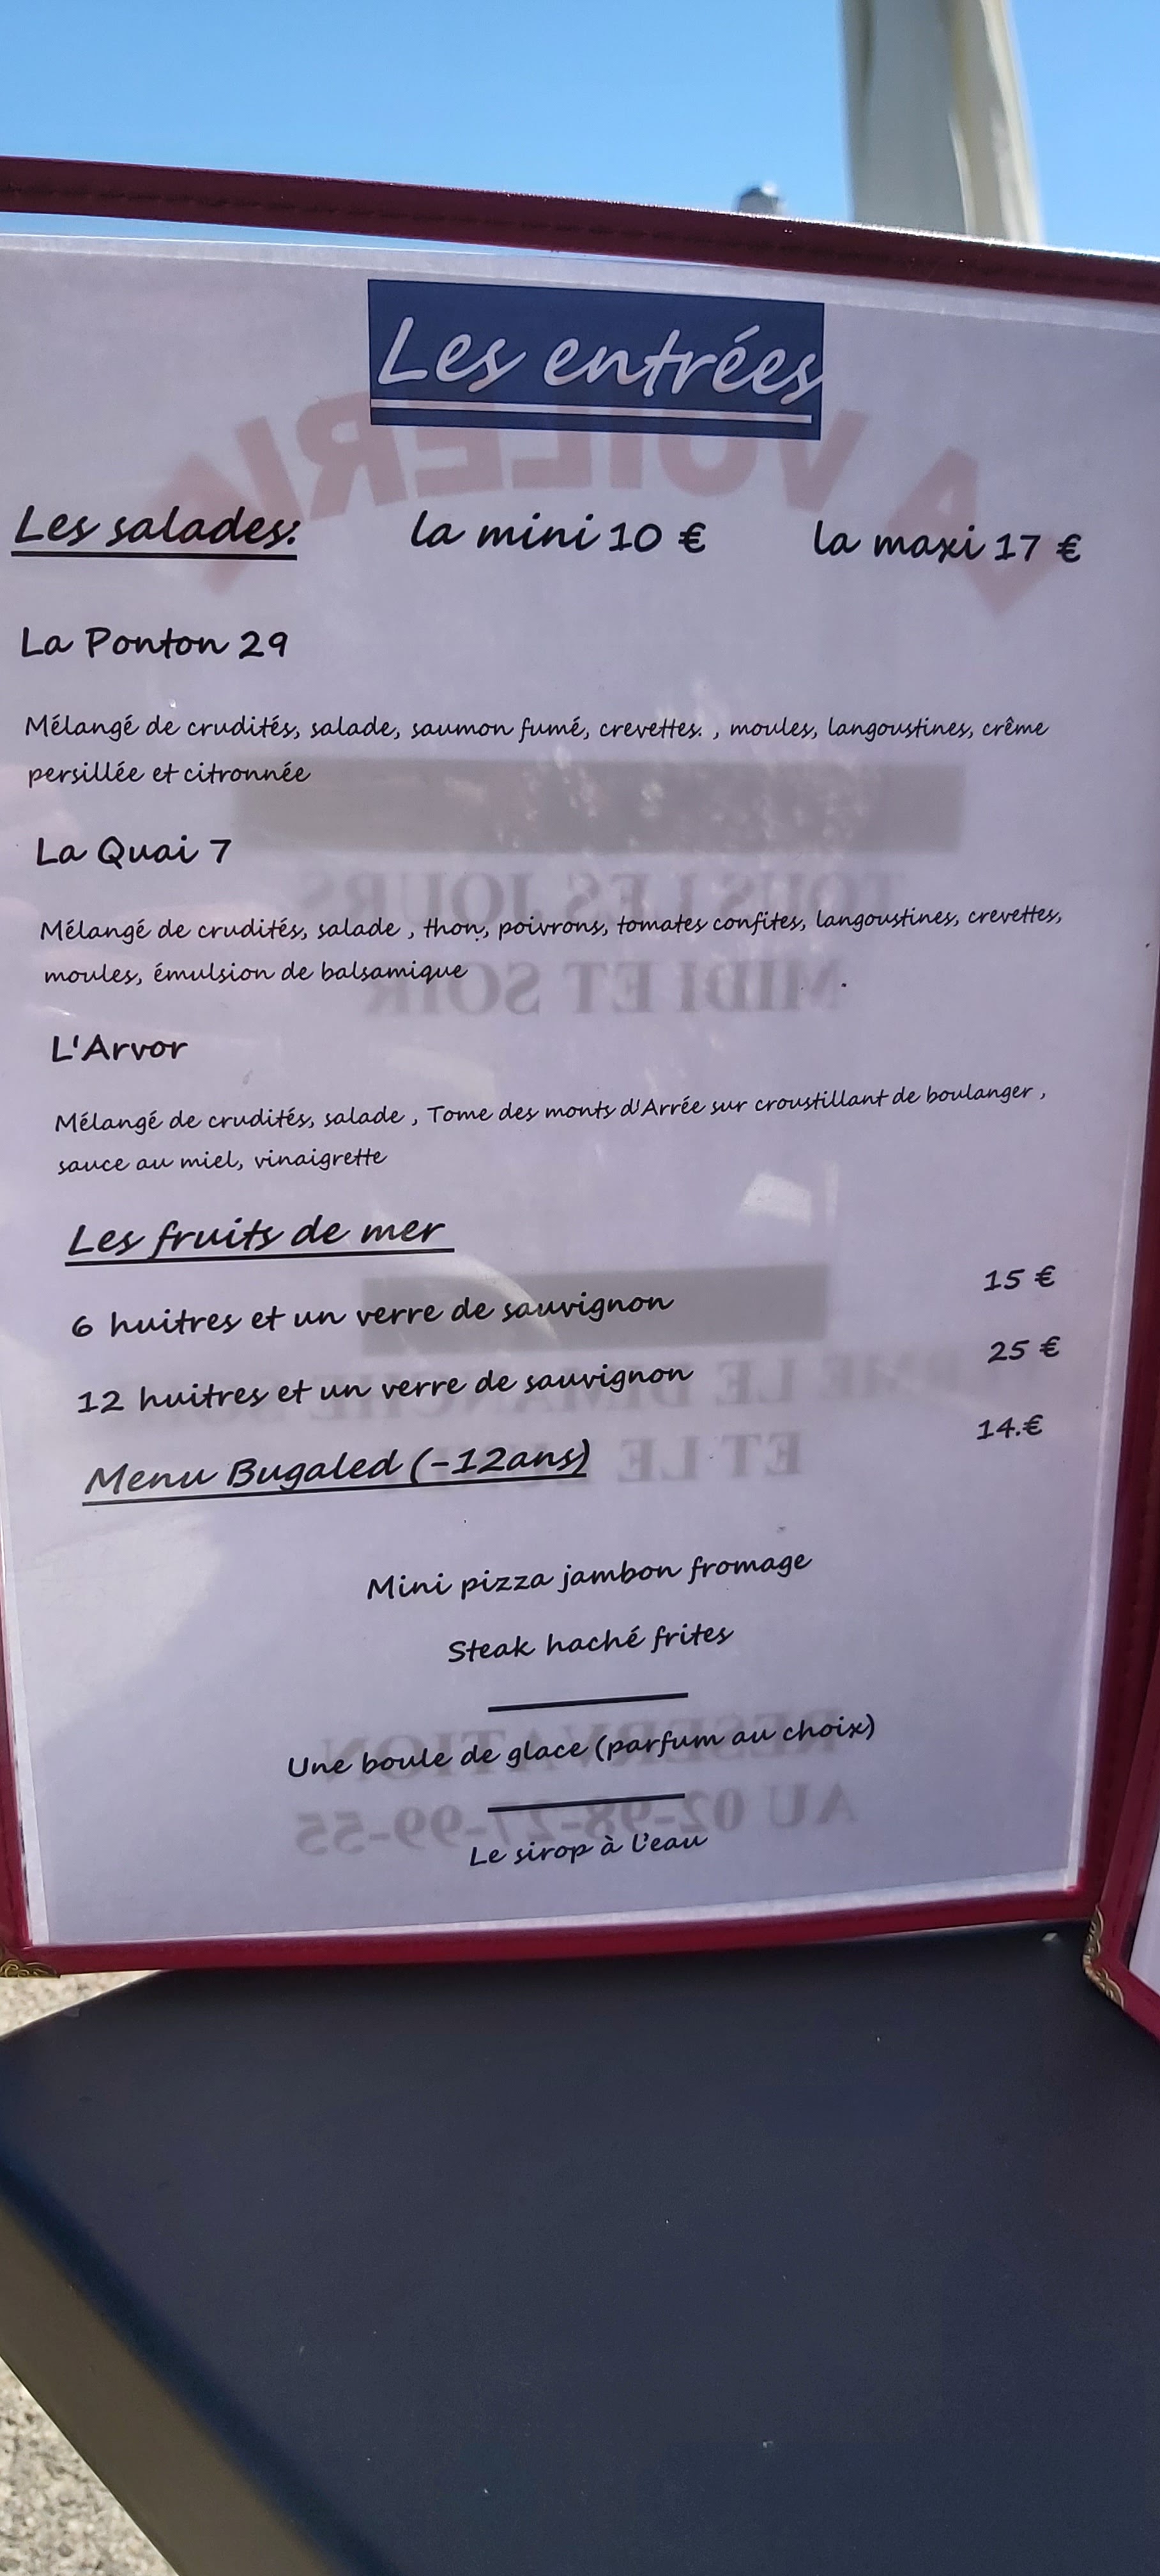 Les entrées
Les salades: la mini 10 € la maxi 17 €
La Ponton 29
Mélangé de crudités, salade, saumon fumé, crevettes. , moules, langoustines, crême
persillée et citronnée
La Quai 7
Mélangé de crudités, salade , thon, poivrons, tomates confites, langoustines, crevettes,
moules, émulsion de balsamique
L'Arvor
Mélangé de crudités, salade , Tome des monts d'Arrée sur croustillant de boulanger ,
sauce au miel, vinaigrette
Les fruits de mer
6 huitres et un verre de sauvignon 15 €
12 huitres et un verre de sauvignon 25 €
Menu Bugaled (-12ans) 14.€
Mini pizza jambon fromage
Steak haché frites
Une boule de glace (parfum au choix)
Le sirop à l'eau
TOUS LES JOURS
MIDI ET SOIR
LE DIMANCHE
ET LE
RESERVATION
AU 02-98-27-99-55